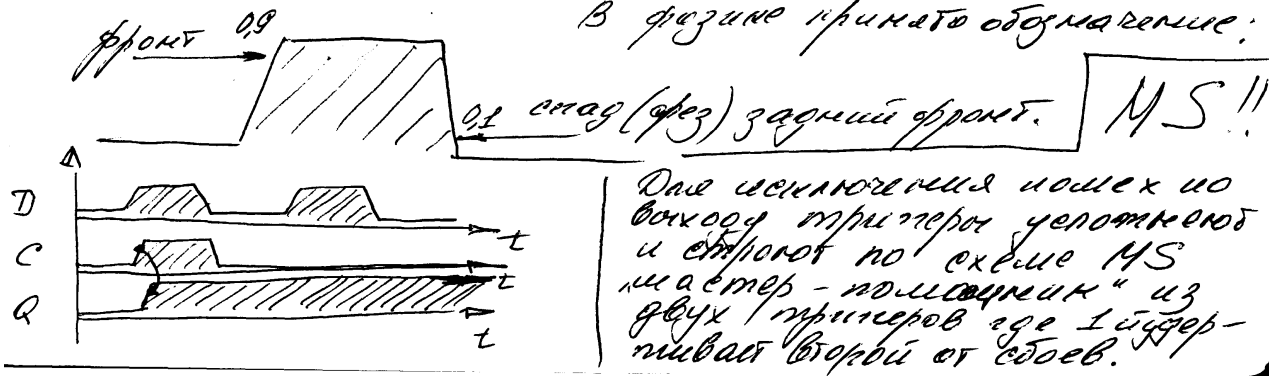 В физике принято обозначение:
фронт 0,9
0,1 спад (срез) задний фронт.
MS!!
D
t
C
t
Q
t
Для исключения помех по
выходу тригеры усложняют
и строют по схеме MS
„мастер - помощник" из
двух тригеров где 1й удер-
живает второй от сбоев.